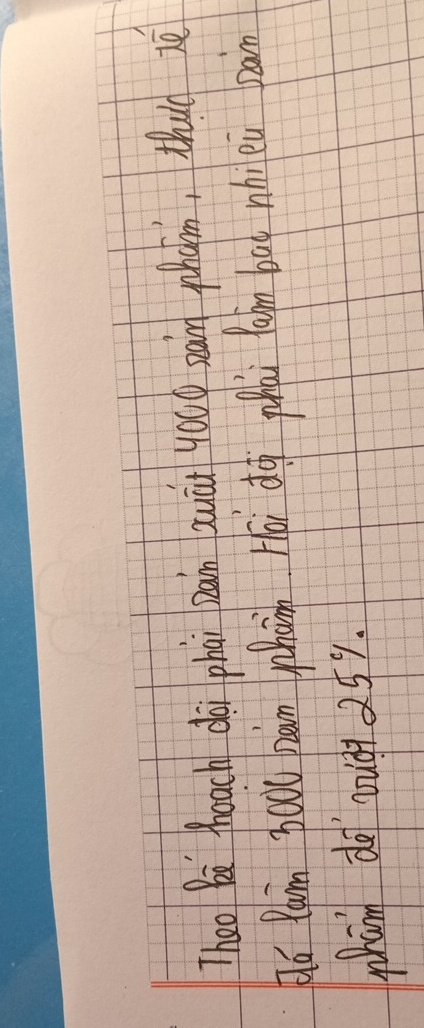 Theo kế hoạch đội phải sản xuất 4000 sản phẩm, thực tế
đã làm 3000 sản phẩm. Hỏi đội phải làm bao nhiêu sản
phẩm để vượt 25%.